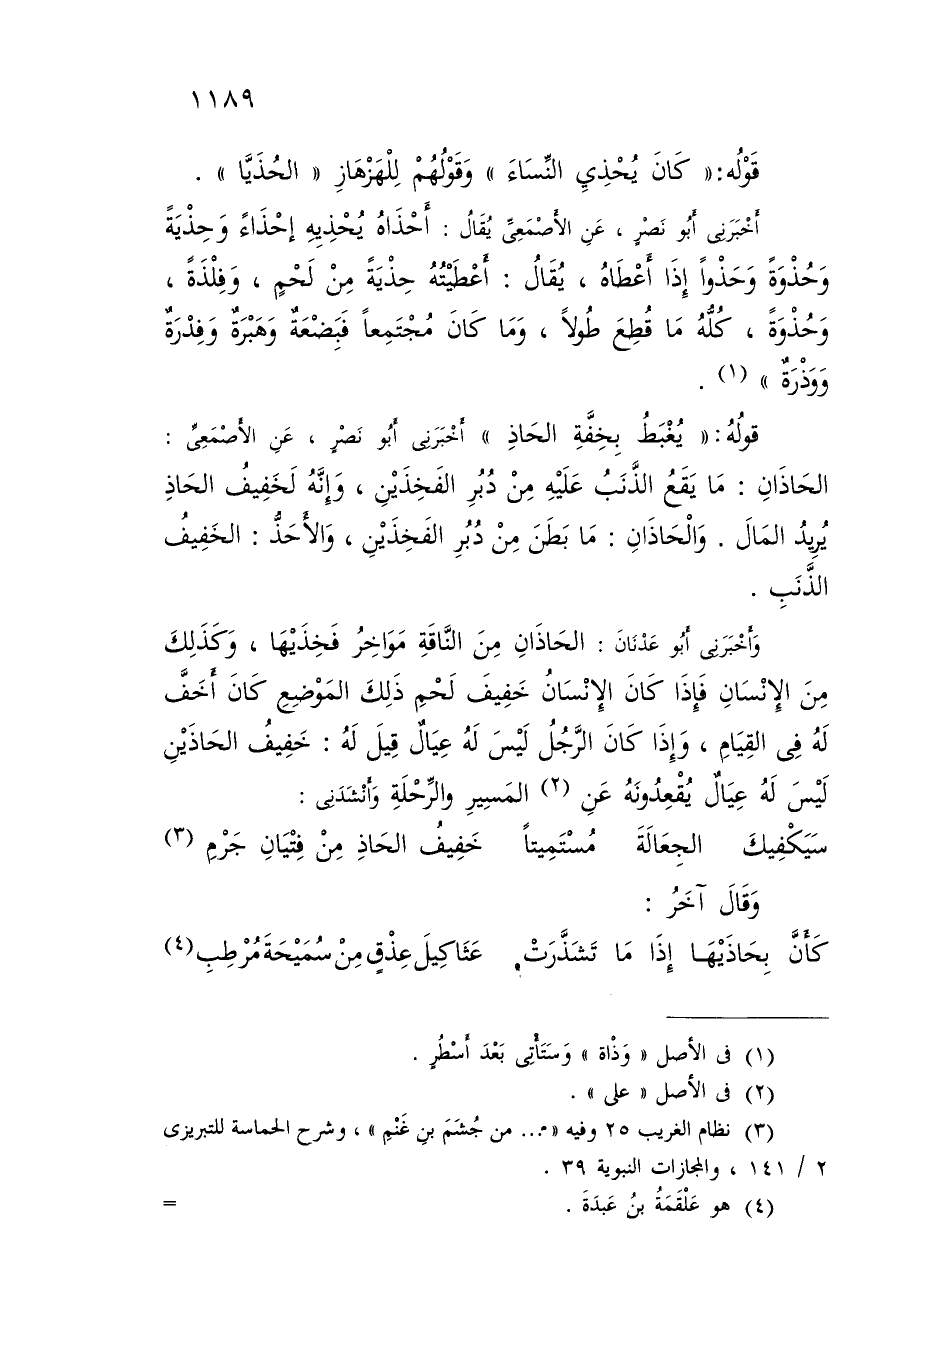 ١١٨٩
قَوْلُه: « كَانَ يُحْذِي النِّسَاءَ » وَقَوْلُهُمْ لِلْهَزْهَازِ « الحُذَيَّا » .
أَخْبَرَنِى أَبُو نَصْرٍ ، عَنِ الأَصْمَعِىِّ يُقَالُ : أَحْذَاهُ يُحْذِيهِ إحْذَاءً وَحِذْيَةً
وَحُذْوَةً وَحَذْواً إِذَا أَعْطَاهُ ، يُقَالُ : أَعْطَيْتُهُ حِذْيَةً مِنْ لَحْمٍ ، وَفِلْذَةً ،
وَحُذْوَةً ، كُلُّهُ مَا قُطِعَ طُولاً ، وَمَا كَانَ مُجْتَمِعاً فَبَضْعَةٌ وَهَبْرَةٌ وَفِدْرَةٌ
وَوَذْرَةٌ » (١) .
قولُهُ: « يُغْبَطُ بِخِفَّةِ الحَاذِ » أَخْبَرَنِى أَبُو نَصْرٍ ، عَنِ الأَصْمَعِىِّ :
الحَاذَانِ : مَا يَقَعُ الذَّنَبُ عَلَيْهِ مِنْ دُبُرِ الفَخِذَيْنِ ، وَإِنَّهُ لَخَفِيفُ الحَاذِ
يُرِيدُ المَالَ . وَالْحَاذَانِ : مَا بَطَنَ مِنْ دُبُرِ الفَخِذَيْنِ ، وَالأَحَذُّ : الخَفِيفُ
الذَّنَبِ .
وَأَخْبَرَنِى أَبُو عَدْنَانَ : الحَاذَانِ مِنَ النَّاقَةِ مَوَاخِرُ فَخِذَيْهَا ، وَكَذَلِكَ
مِنَ الإِنْسَانِ فَإِذَا كَانَ الإِنْسَانُ خَفِيفَ لَحْمِ ذَلِكَ المَوْضِعِ كَانَ أَخَفَّ
لَهُ فِى القِيَامِ ، وَإِذَا كَانَ الرَّجُلُ لَيْسَ لَهُ عِيَالٌ قِيلَ لَهُ : خَفِيفُ الحَاذَيْنِ
لَيْسَ لَهُ عِيَالٌ يُقْعِدُونَهُ عَنِ (٢) المَسِيرِ والرِّحْلَةِ وَأَنْشَدَنِى :
سَيَكْفِيكَ الجِعَالَةَ مُسْتَمِيتاً خَفِيفُ الحَاذِ مِنْ فِتْيَانِ جَرْمِ (٣)
وَقَالَ آخَرُ :
كَأَنَّ بِحَاذَيْهَا إِذَا مَا تَشَذَّرَتْ عَثَاكِيلَ عِذْقٍ مِنْ سُمَيْحَةَ مُرْطِبِ (٤)
(١) فى الأصل « وَذْاة » وَسَتَأْتِى بَعْدَ أَسْطُرٍ .
(٢) فى الأصل « على » .
(٣) نظام الغريب ٢٥ وفيه « ... من جُشَمَ بنِ غَنْمِ » ، وشرح الحماسة للتبريزى
٢ / ١٤١ ، والمجازات النبوية ٣٩ .
(٤) هو عَلْقَمَةُ بنُ عَبدَةَ . =